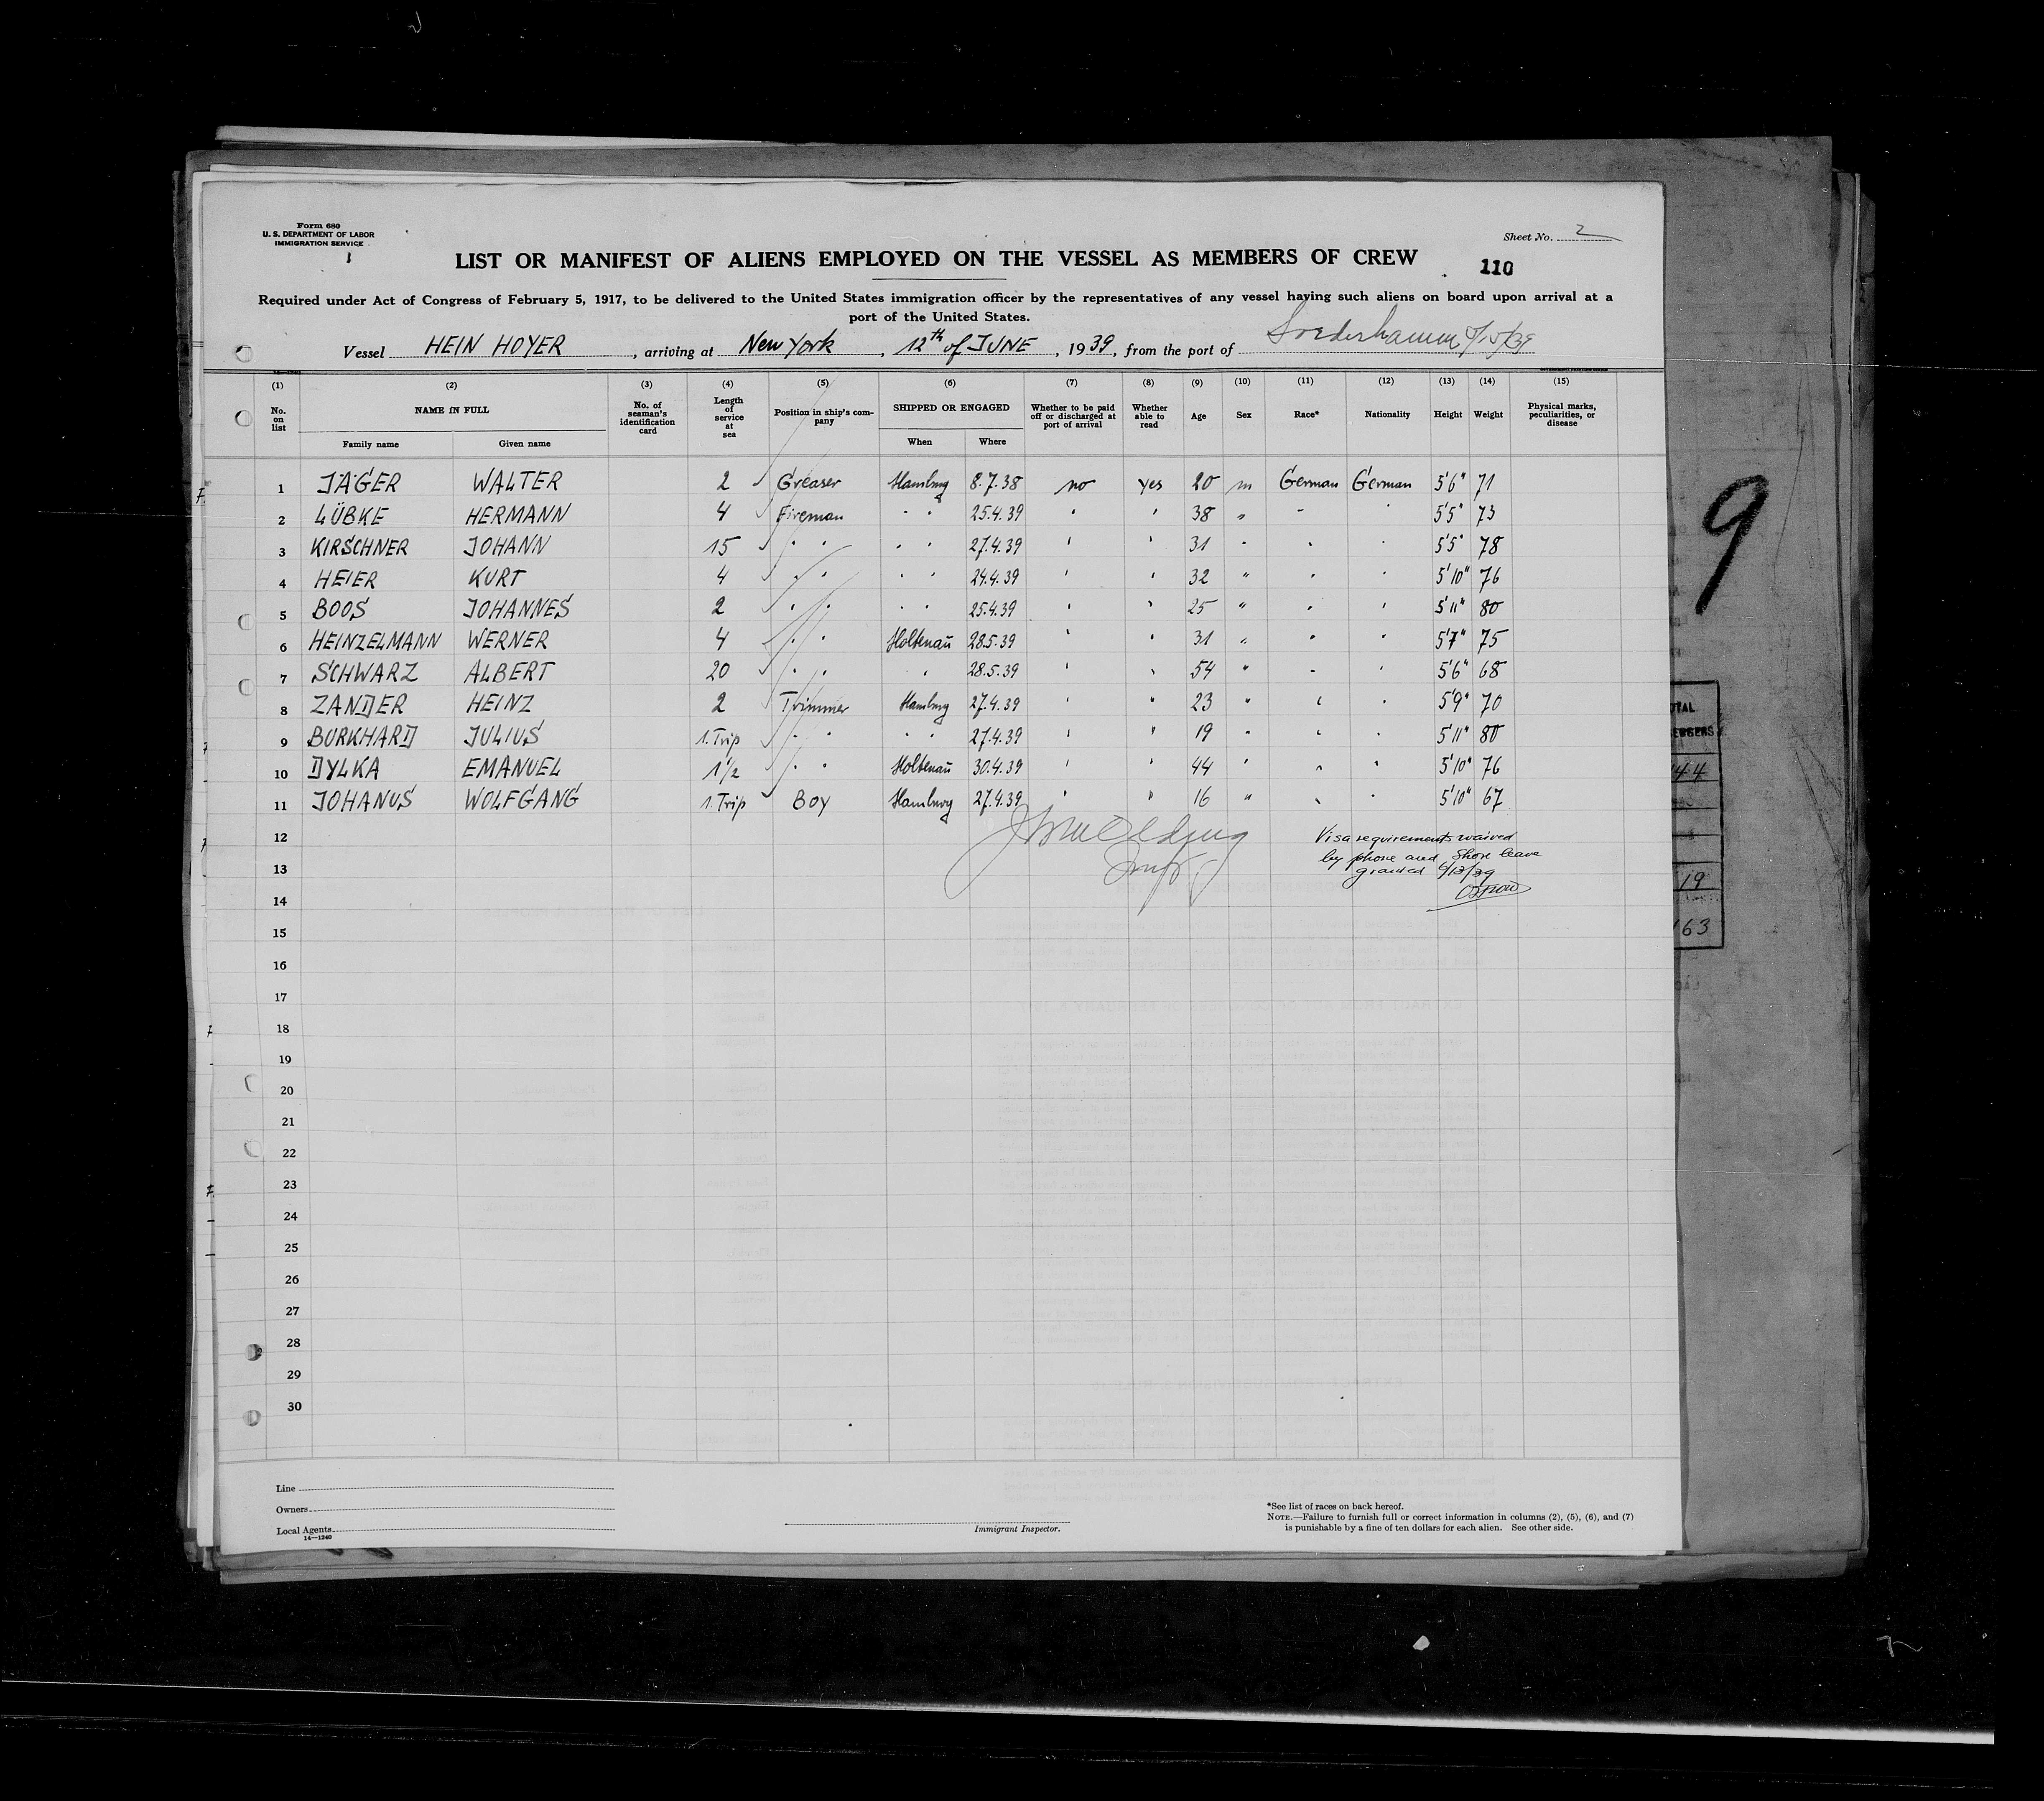 Form 680
U. S. DEPARTMENT OF LABOR
IMMIGRATION SERVICE
Sheet No. 2
LIST OR MANIFEST OF ALIENS EMPLOYED ON THE VESSEL AS MEMBERS OF CREW
110
Required under Act of Congress of February 5, 1917, to be delivered to the United States immigration officer by the representatives of any vessel having such aliens on board upon arrival at a
port of the United States.
Vessel HEIN HOYER, arriving at New York, 12th of JUNE, 1939, from the port of Soederhamm
(1) (2) (3) (4) (5) (6) (7) (8) (9) (10) (11) (12) (13) (14) (15)
No. on list NAME IN FULL Family name Given name No. of seaman's identification card Length of service at sea Position in ship's company SHIPPED OR ENGAGED When Where Whether to be paid off or discharged at port of arrival Whether able to read Age Sex Race* Nationality Height Weight Physical marks, peculiarities, or disease
1 JÄGER WALTER 2 Greaser Hamburg 8.7.38 no yes 20 m German German 5'6" 71
2 LÜBKE HERMANN 4 Fireman " " 25.4.39 " " 38 " " " 5'5" 73
3 KIRSCHNER JOHANN 15 " " " " 27.4.39 " " 31 " " " 5'5" 78
4 HEIER KURT 4 " " " " 24.4.39 " " 32 " " " 5'10" 76
5 BOOS JOHANNES 2 " " " " 25.4.39 " " 25 " " " 5'11" 80
6 HEINZELMANN WERNER 4 " " Holtenau 28.5.39 " " 31 " " " 5'7" 75
7 SCHWARZ ALBERT 20 " " " 28.5.39 " " 54 " " " 5'6" 68
8 ZANDER HEINZ 2 Trimmer Hamburg 27.4.39 " " 23 " " " 5'9" 70
9 BURKHARD JULIUS 1. Trip " " " " 27.4.39 " " 19 " " " 5'11" 80
10 DYLKA EMANUEL 1 1/2 " " Holtenau 30.4.39 " " 44 " " " 5'10" 76
11 JOHANUS WOLFGANG 1. Trip Boy Hamburg 27.4.39 " " 16 " " " 5'10" 67
12
13
14
Visa requirements waived
by phone and Shore leave
granted 6/13/39
15
16
17
18
19
20
21
22
23
24
25
26
27
28
29
30
Line
Owners
Local Agents
14—1240
Immigrant Inspector.
*See list of races on back hereof.
NOTE.—Failure to furnish full or correct information in columns (2), (5), (6), and (7)
is punishable by a fine of ten dollars for each alien. See other side.
9
44
19
63